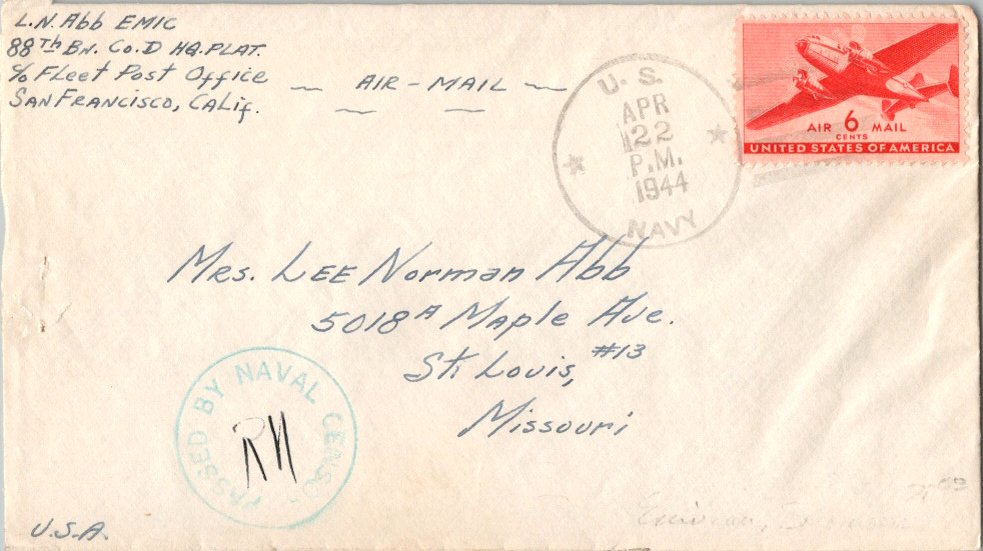 L.N. Abb EM1C
88th Bn. Co. D HQ. PLAT.
c/o Fleet Post Office
San Francisco, Calif.
~ AIR-MAIL ~
U. S.
APR
22
P.M.
1944
NAVY
AIR 6 MAIL
CENTS
UNITED STATES OF AMERICA
Mrs. Lee Norman Abb
5018A Maple Ave.
St. Louis, #13
Missouri
PASSED BY NAVAL CENSOR
RH
U.S.A.